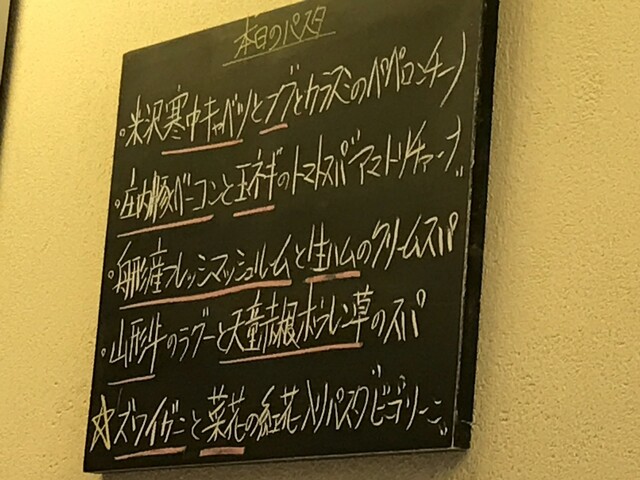 本日のパスタ
・米沢寒中キャベツとフグとカラスミのペペロンチーノ
・庄内豚ベーコンと玉ネギのトマトスパ アマトリチャーナ
・舟形産フレッシュマッシュルームと生ハムのクリームスパ
・山形牛のラグーと天童赤根ホウレン草のスパ
☆ズワイガニと菜花の紅花入りパスタ ビゴリーニ